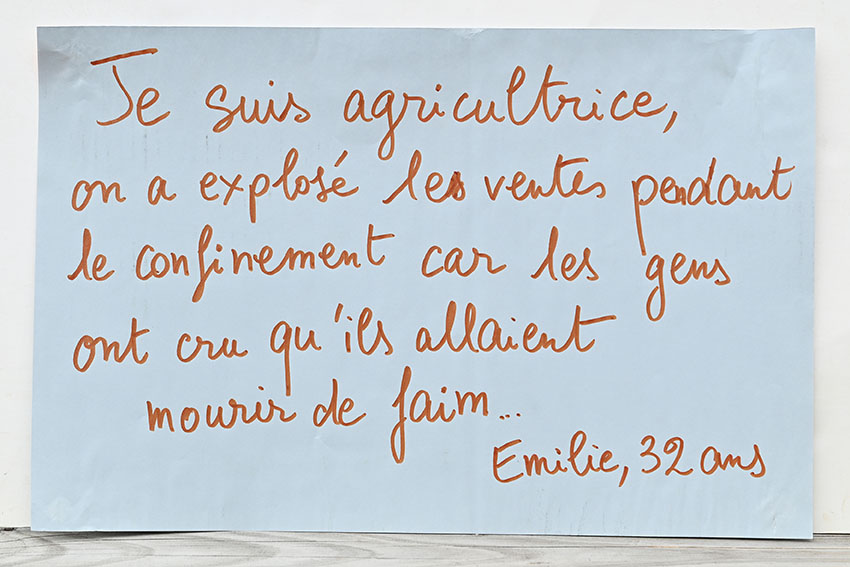 Je suis agricultrice,
on a explosé les ventes pendant
le confinement car les gens
ont cru qu'ils allaient
mourir de faim...
Emilie, 32 ans